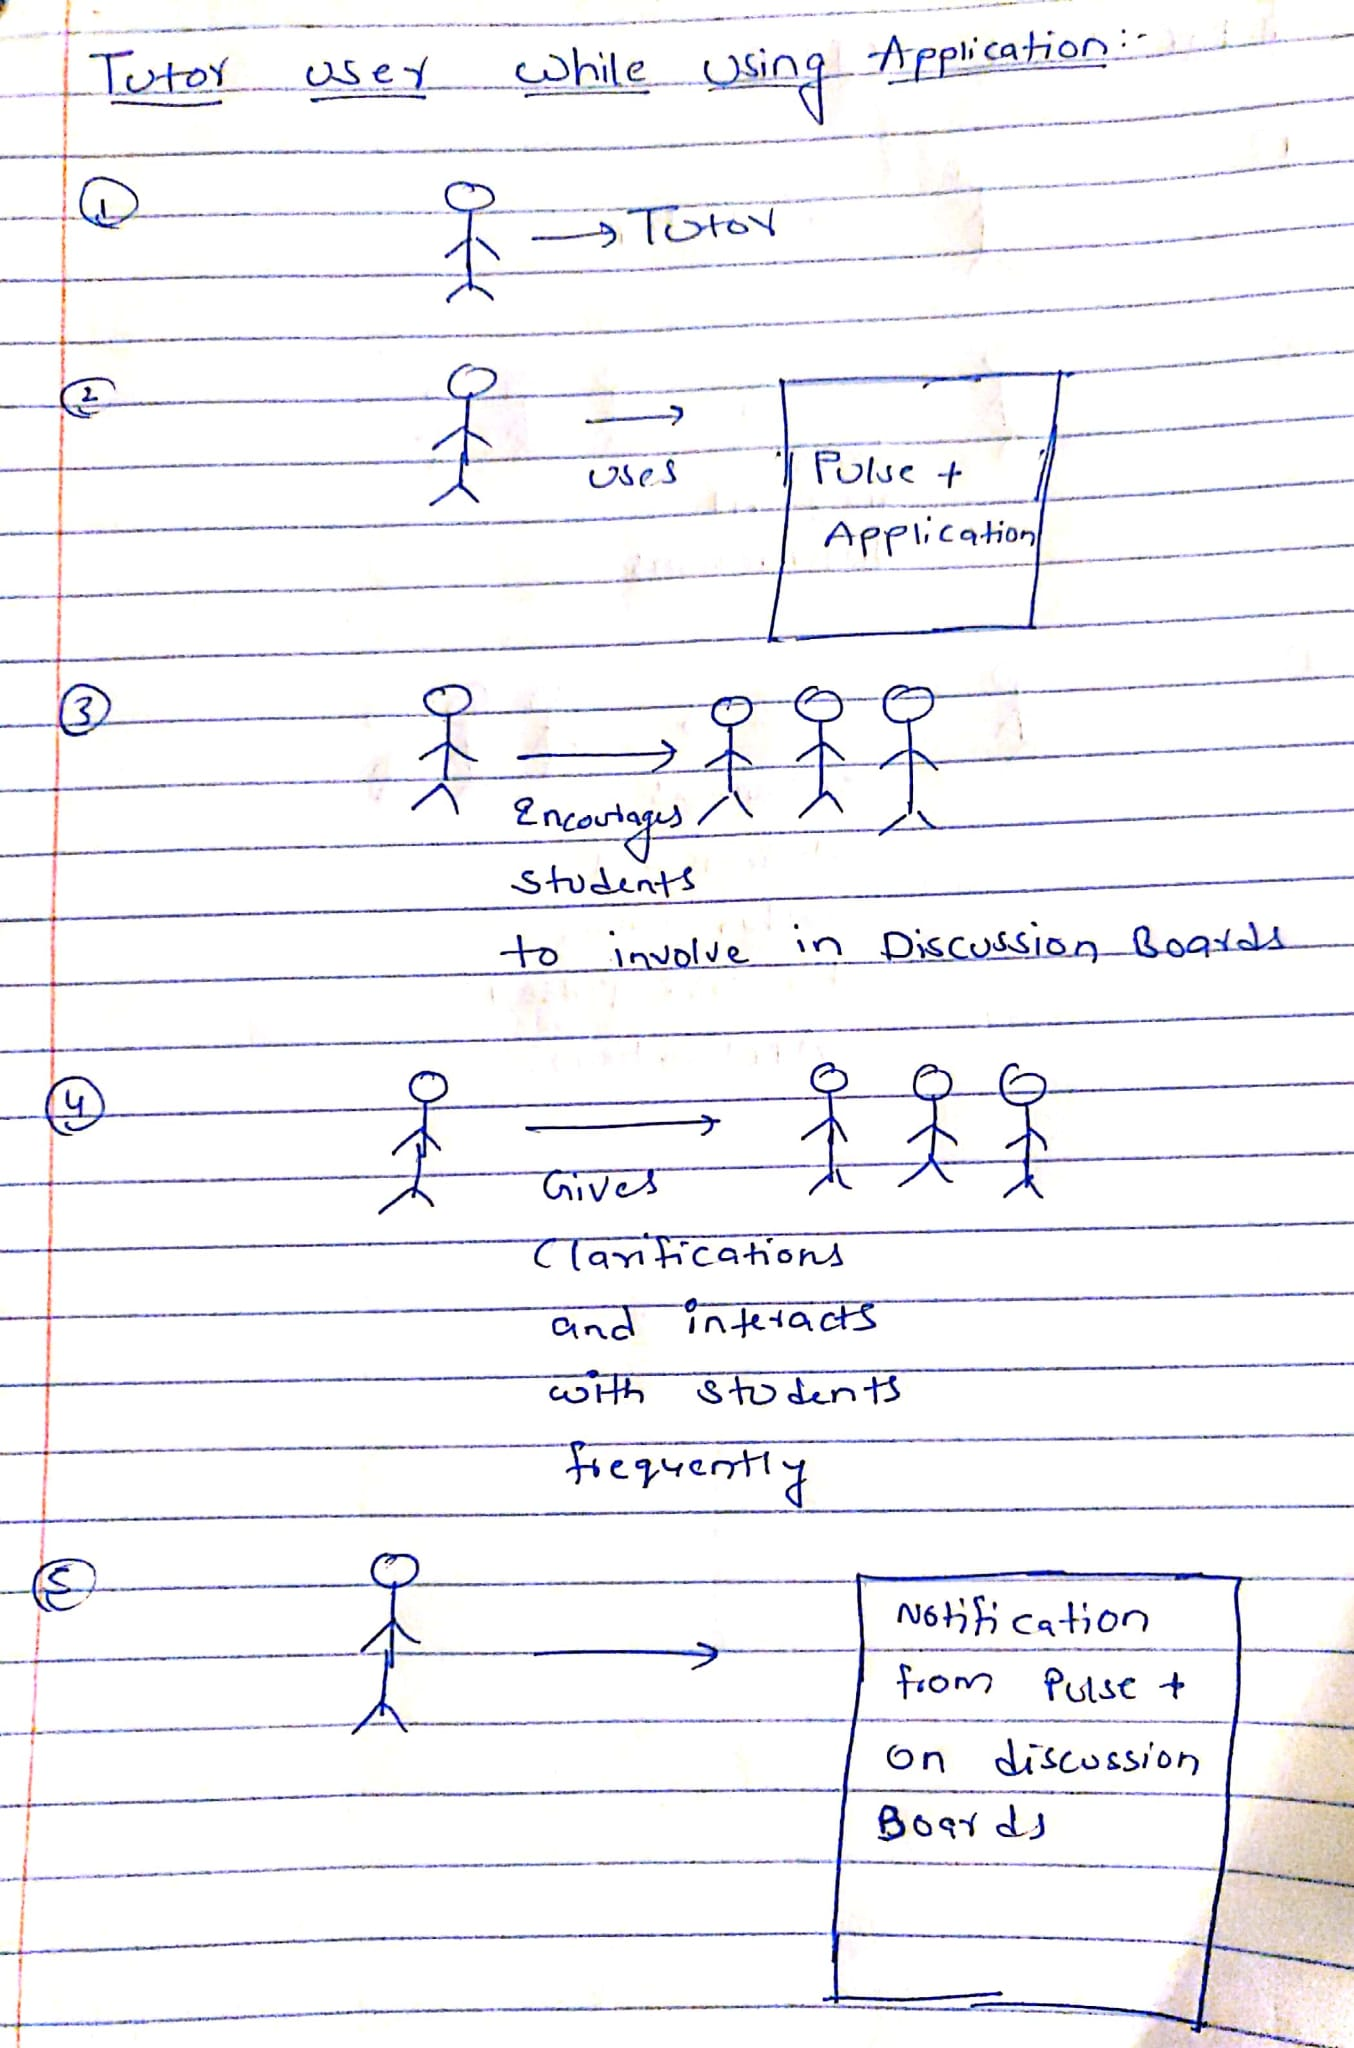 Tutor user while using Application:-
1
→ Tutor
2
→
uses
Pulse +
Application
3
→
Encourages
students
to involve in Discussion Boards
4
→
Gives
Clarifications
and interacts
with students
frequently
5
→
Notification
from Pulse +
on discussion
Boards